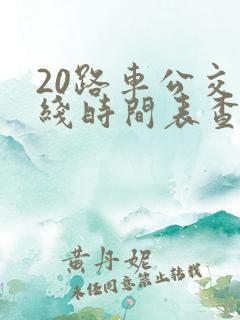 20路車公交
綫時間表查
黄丹妮
未经同意禁止转载